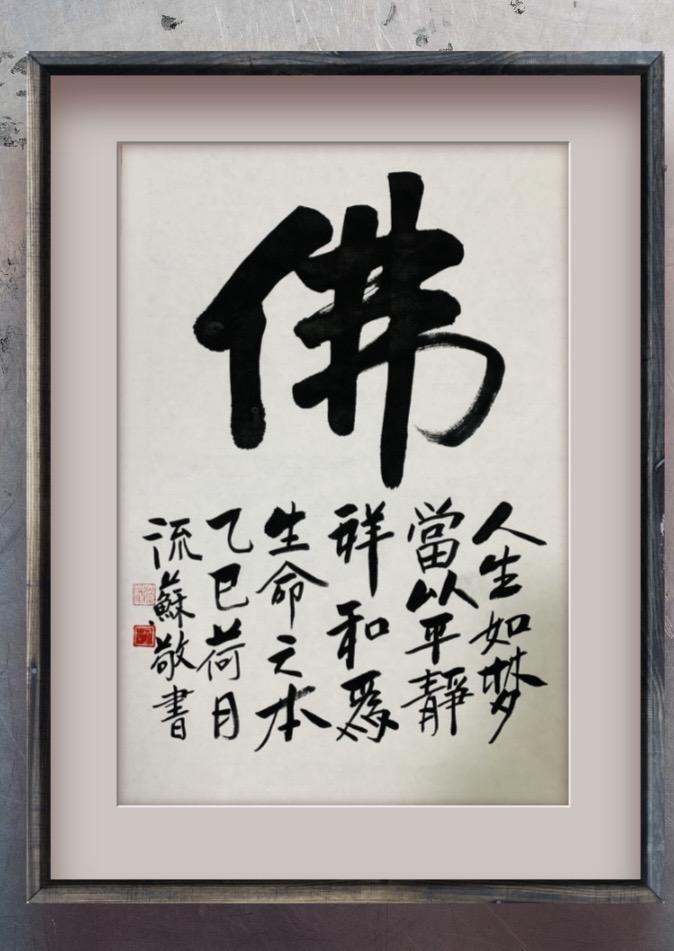 佛
人生如梦
當以平靜
祥和爲
生命之本
乙巳荷月
流蘇敬書